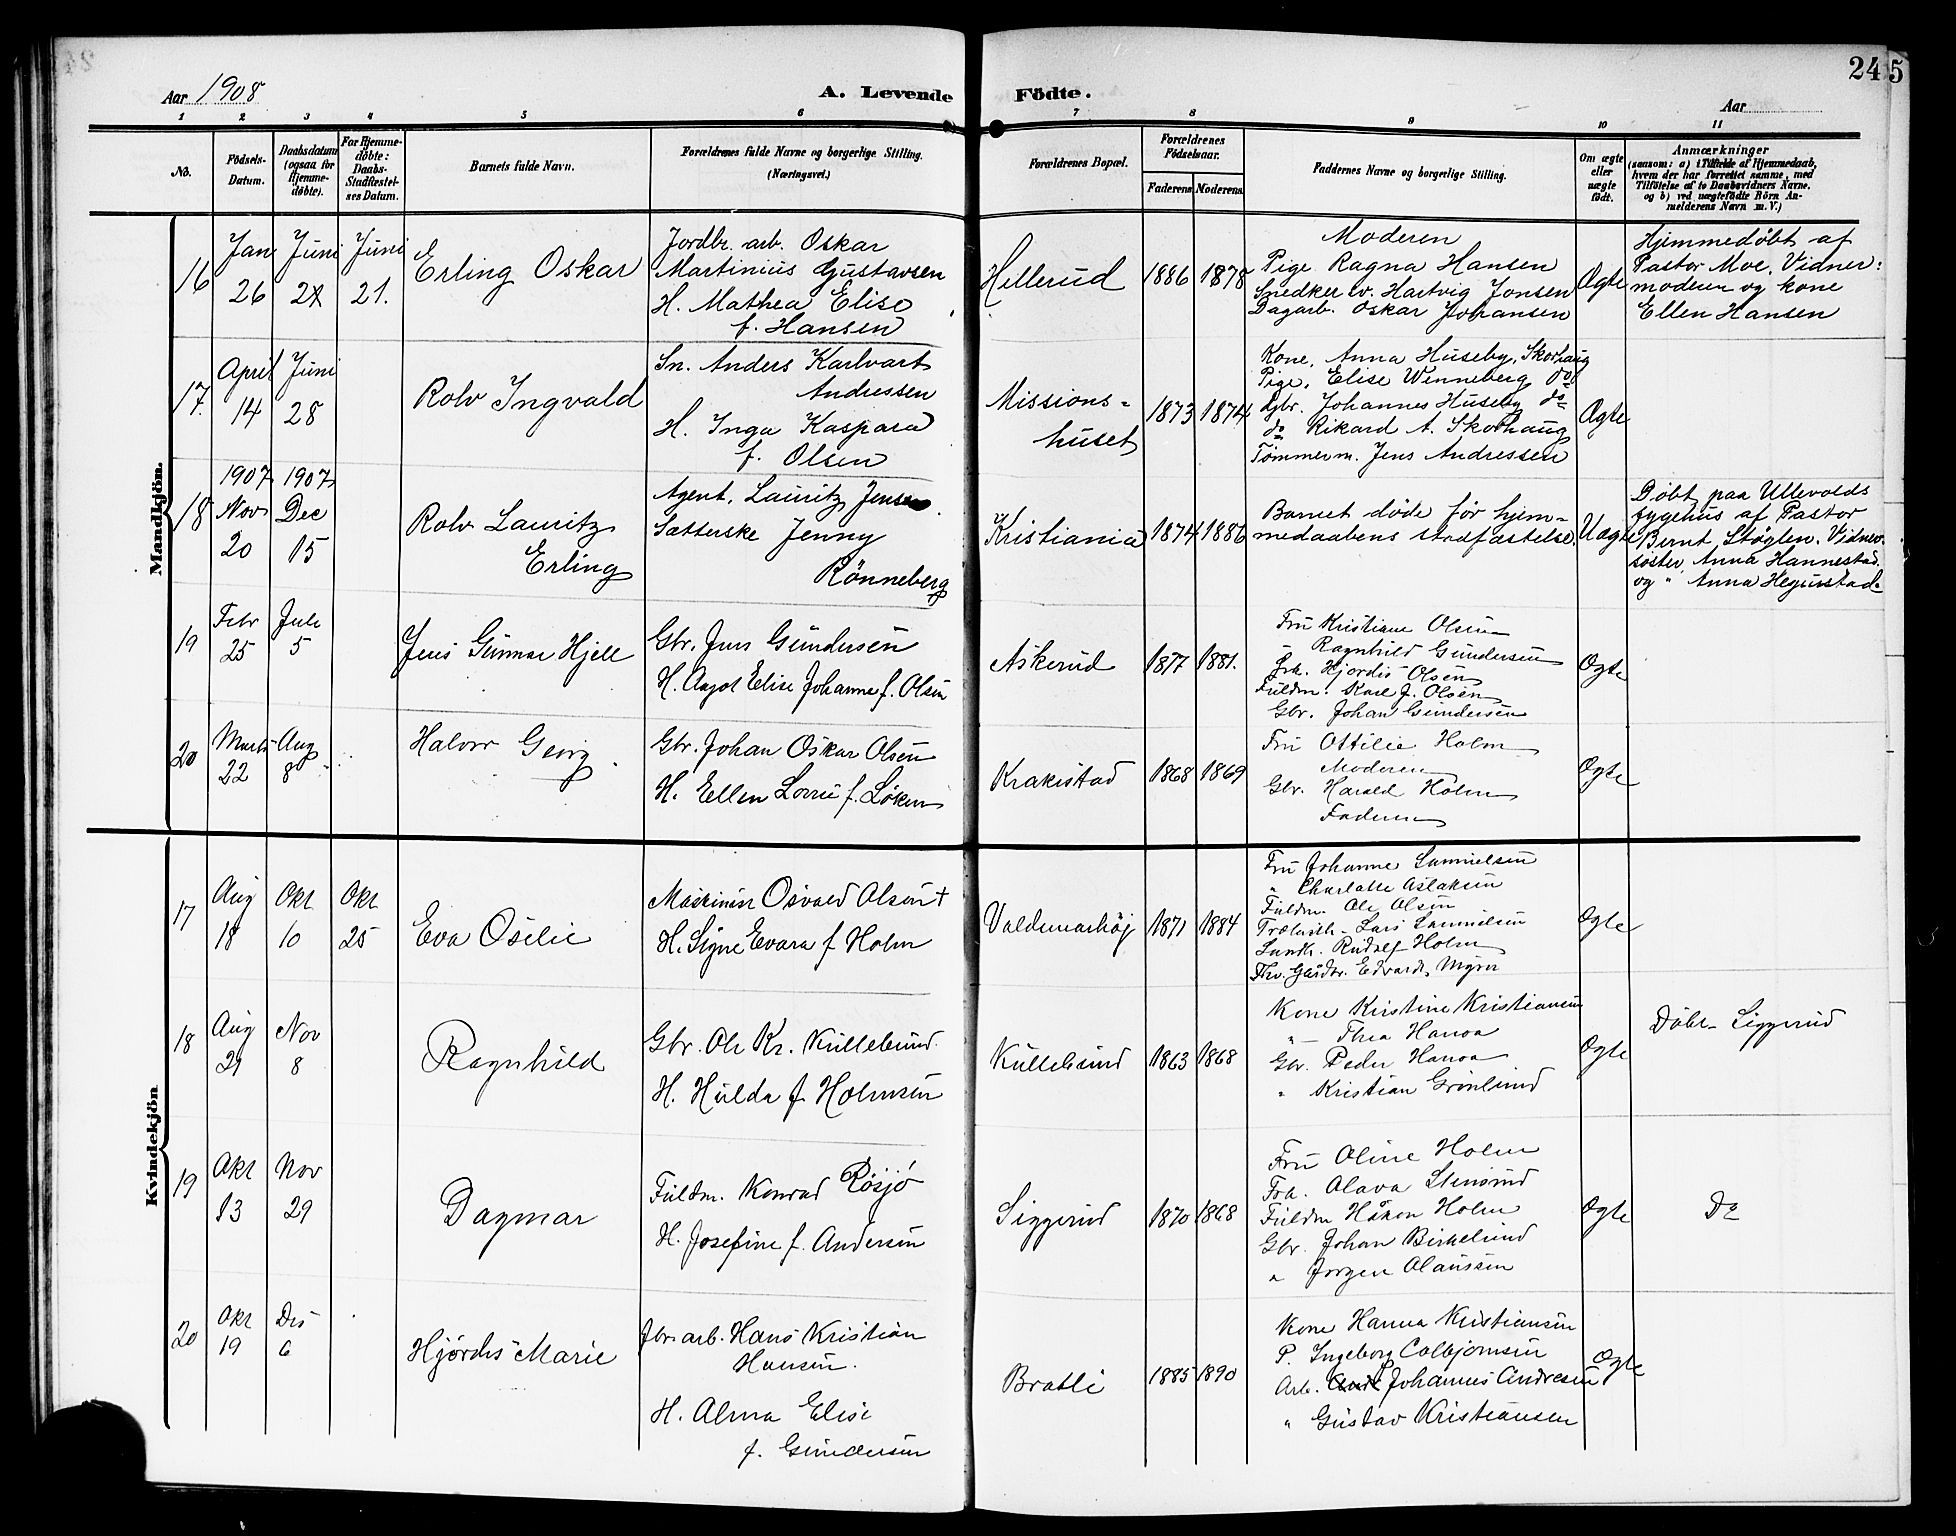 Aar 1908
A. Levende Födte.
24 5
Aar
1 2 3 4 5 6 7 8 9 10 11
No.
Födsels-
Datum.
Daabsdatum
(ogsaa for
Hjemme-
döbte).
For Hjemme-
döbte:
Daabs-
Stadfæstel-
ses Datum.
Barnets fulde Navn.
Forældrenes fulde Navne og borgerlige Stilling.
(Næringsvei.)
Forældrenes Bopæl.
Forældrenes
Födselsaar.
Faderens Moderens
Faddernes Navne og borgerlige Stilling.
Om ægte
eller
uægte
födt.
Anmærkninger
(saasom: a) i Tilfælde af Hjemmedaab,
hvem der har forrettet samme, med
Tilföielse af to Daabsvidners Navne.
og b) ved uægtefödte Börn An-
melderens Navn m. V.)
Mandkjön.
16
Jan
26
Juni
21
Juni
21.
Erling Oskar
Jordbr. arb. Oskar
Martinius Gustavsen
H. Mathea Elise
f. Hansen
Hellerud
1886 1878
Moderen
Pige Ragna Hansen
Snedker sv. Hartvig Jonsen
Dagarb. Oskar Johansen
Ægte
Hjemmedøbt af
Pastor Moe, Vidner:
moderen og kone
Ellen Hansen
17.
April
14
Juni
28
Rolv Ingvald
Sn. Anders Karlvart
Andressen
H. Inga Kaspara
f. Olsen
Missions-
huset
1873 1874
Kone, Anna Huseby, Skorhaug
Pige, Elise Wenneberg do
Gbr. Johannes Huseby do
do Rikard A. Skorhaug
Tømmerm. Jens Andressen
Ægte
18
1907
Nov
20
1907
Dec
15
Rolv Lauritz
Erling
Agent, Lauritz Jensen
Satterske Jenny
Rönneberg
Kristiania
1874 1886
Barnet døde før hjem-
medaabens stadfæstelse.
Uægte
Døbt paa Ullevolds
sygehus af Pastor
Bernt Støylen. Vidner
søster Anna Hannestad
og " Anna Hegustad.
19
Febr
25
Juli
5
Jens Gunnar Hjell
Gbr. Jens Gundersen
H. Aagot Elise Johanne f. Olsen
Askerud
1877 1881.
Fru Kristiane Olsen
" Ragnhild Gundersen
Frk. Hjørdis Olsen
Fuldm. Karl J. Olsen
Gbr. Johan Gundersen
Ægte
20
Marts
22
Aug
8
Halvor Georg
Gbr. Johan Oskar Olsen
H. Ellen Lovise f. Løken
Krakistad
1868 1869
Fru Ottilie Holm
Moderen
Gbr. Harald Holm
Faderen
Ægte
Kvindekjön
17
Aug
18
Okt
10
Okt
25
Eva Osilie
Maskinist Osvald Olsen +
H. Signe Evara f. Holm
Valdemarhøj
1871 1884
Fru Johanne Samuelsen
" Charlotte Aslaksen
Fuldm. Ole Olsen
Trælasth. Lars Samuelsen
Landh. Rudolf Holm
Fhv. Gaardbr. Edvard Myrer
Ægte
18
Aug
21
Nov
8
Ragnhild
Gbr. Ole Kr. Kullebund
H. Hulda f. Holmsen
Kullebund
1863 1868
Kone Kristine Kristiansen
" Thea Hanoa
Gbr. Peder Hanoa
" Kristian Grønlund
Ægte
Døbt Siggerud
19
Okt
13
Nov
29
Dagmar
Fuldm. Konrad Røsjø
H. Josefine f. Andersen
Siggerud
1870 1868
Fru Oline Holm
Frk. Olava Stensrud
Fuldm Håkon Holm
Gbr. Johan Birkelund
" Jørgen Olaussen
Ægte
Do
20
Okt
19
Des
6
Hjørdis Marie
Jbr. arb. Hans Kristian
Hansen.
H. Alma Elise
f. Gundersen
Bratli
1885 1890
Kone Hanna Kristiansen
P. Ingeborg Colbjørnsen
Arb. Johannes Andresen
" Gustav Kristiansen
Ægte